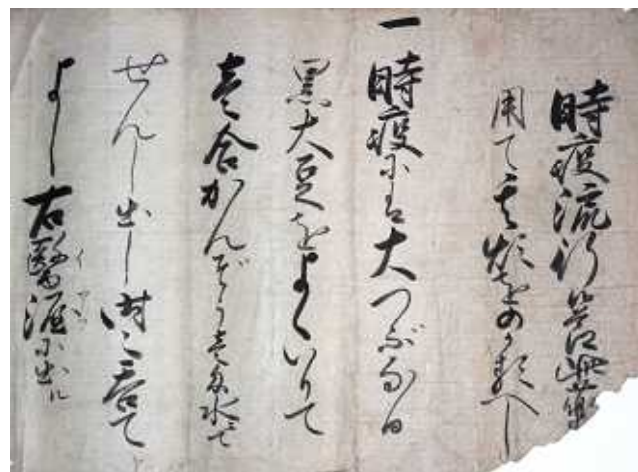 時疫流行節此薬
用て其煩をのかるへし
一時疫には大つぶなる
黒大豆をよくいりて
壱合かんぞう壱匁水にて
せんし出し時々呑て
よし右醫渥に出ル
イアク